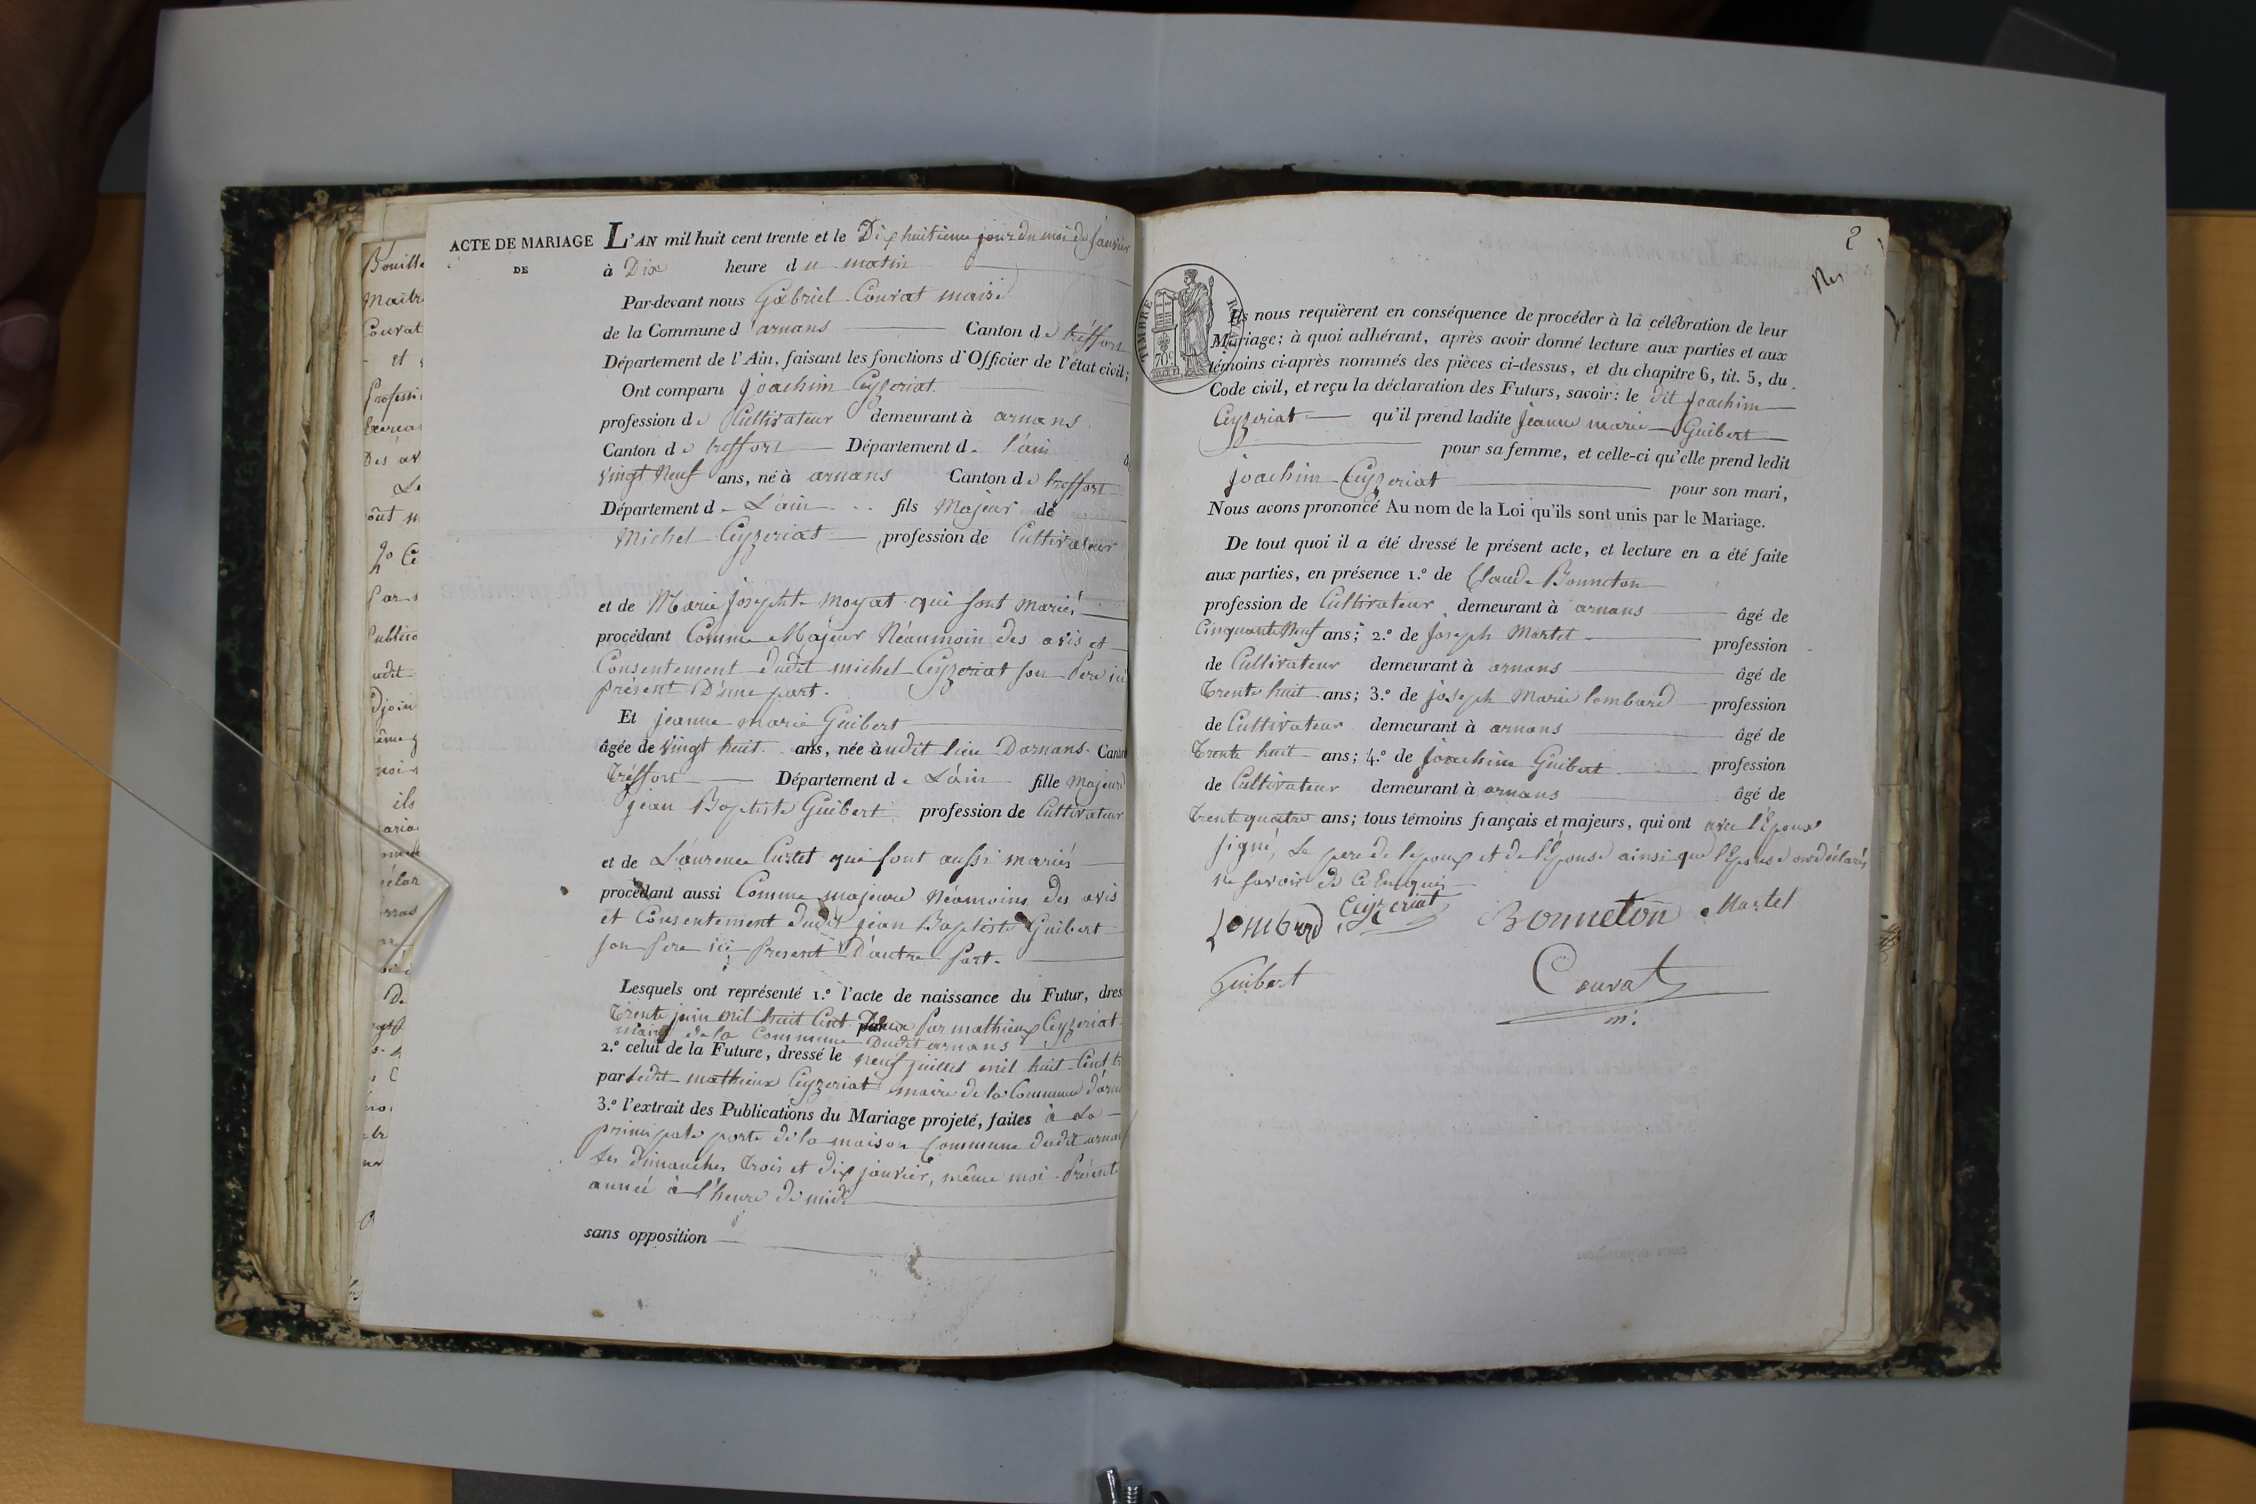 Bouille
Maitre
Couvat
et
Professi
Exercan
Des av
Le
ont
2º Ce
Par
Public
udit
djoin
ème
moi
ils
aria
ACTE DE MARIAGE
DE
L'AN mil huit cent trente et le Dixhuitieme jour du moi de Janvier
à Dix heure du matin
Par-devant nous Gabriel Couvat maire
de la Commune d arnans Canton de tréffort
Département de l'Ain, faisant les fonctions d'Officier de l'état civil;
Ont comparu Joachim Ceyzeriat
profession de Cultivateur demeurant à arnans
Canton de treffort Département de l'ain
vingt Neuf ans, né à arnans Canton de treffort
Département de L'ain fils Majeur de
Michel Ceyzeriat profession de Cultivateur
et de Marie Josephte Moyat qui sont mariés
procédant Comme Majeur Néaumoin des avis et
Consentement dudit michel Ceyzeriat son Pere ici
présent D'une part.
Et jeanne marie Guibert
âgée de vingt huit ans, née àudit lieu Darnans Canton
Tréffort Département de L'ain fille Majeure
jean Baptiste Guibert profession de Cultivateur
et de Laurence Curtet qui sont aussi mariés
procédant aussi Comme majeure Néamoins des avis
et Consentement dudit jean Baptiste Guibert
son Pere ici Present D'autre Part.
Lesquels ont représenté 1.º l'acte de naissance du Futur, dres
Trente juin mil huit Cent par mathieux Ceyzeriat
maire de la Commune Dudit arnans
2.º celui de la Future, dressé le neuf juillet mil huit Cent
par ledit mathieux Ceyzeriat maire de la Commune d'arn
3.º l'extrait des Publications du Mariage projeté, faites à La
principale porte de la maison Commune dudit arnan
Les Dimanches Trois et dix janvier, même moi Présente
année à l'heure de midi
sans opposition
2
TIMBRE
70 c
Ils nous requièrent en conséquence de procéder à la célébration de leur
Mariage; à quoi adhérant, après avoir donné lecture aux parties et aux
témoins ci-après nommés des pièces ci-dessus, et du chapitre 6, tit. 5, du
Code civil, et reçu la déclaration des Futurs, savoir: le dit Joachim
Ceyzeriat qu'il prend ladite Jeanne marie Guibert
pour sa femme, et celle-ci qu'elle prend ledit
joachim Ceyzeriat pour son mari,
Nous avons prononcé Au nom de la Loi qu'ils sont unis par le Mariage.
De tout quoi il a été dressé le présent acte, et lecture en a été faite
aux parties, en présence 1.º de Claude Bonneton
profession de Cultivateur demeurant à arnans âgé de
Cinquante Neuf ans; 2.º de Joseph Martet profession
de Cultivateur demeurant à arnans âgé de
Trente huit ans; 3.º de joseph Marie lombard profession
de Cultivateur demeurant à arnans âgé de
Trente huit ans; 4.º de Joachim Guibert profession
de Cultivateur demeurant à arnans âgé de
Trente quatre ans; tous témoins français et majeurs, qui ont avec l'Epoux
signé, Le pere de l'epoux et de l'Epouse ainsi que l'Epouse ont déclarés
ne savoir de Ce Enquis
Lombard Ceyzeriat Bonneton Martel
Guibert Couvat
m.